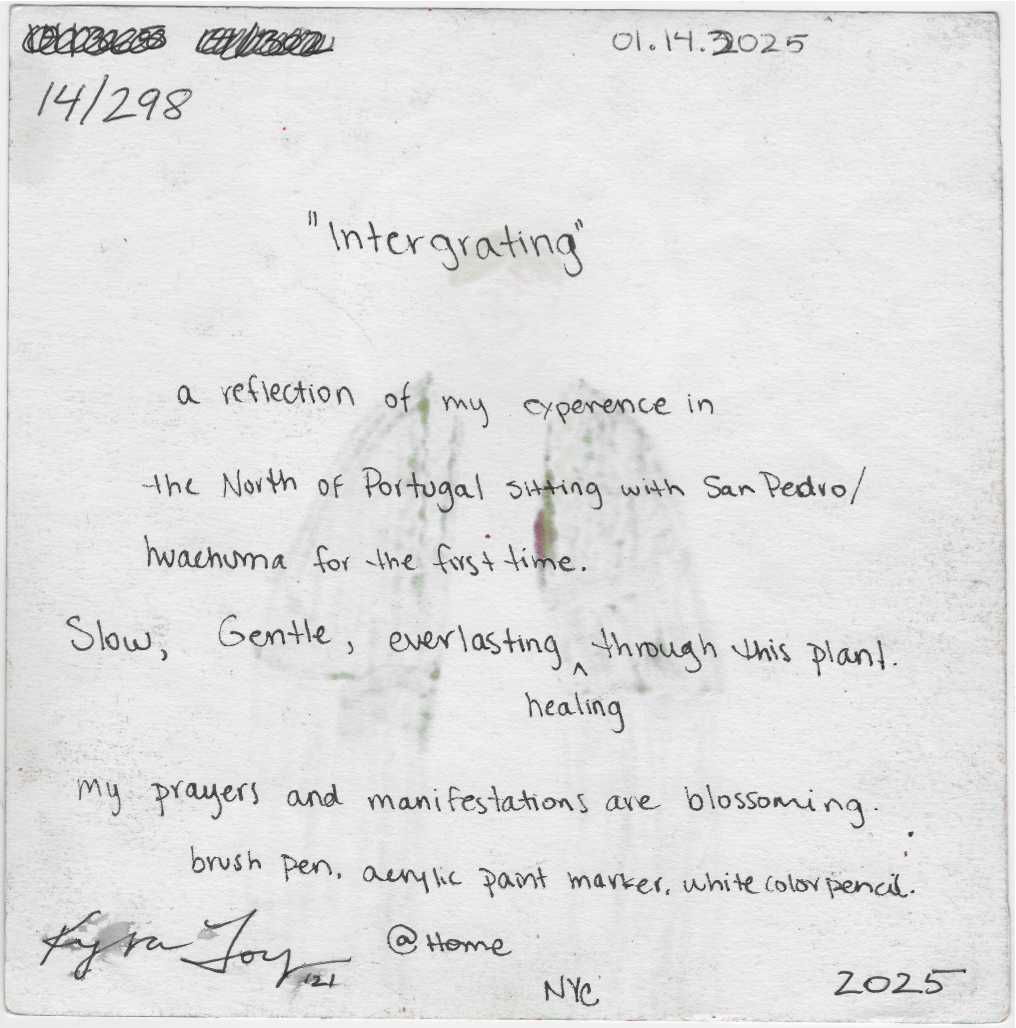 01.14.2025
14/298
"Intergrating"
a reflection of my experence in
the North of Portugal sitting with San Pedro/
hwachuma for the first time.
Slow, Gentle, everlasting ^ through this plant.
healing
my prayers and manifestations are blossoming.
brush pen, acrylic paint marker, white color pencil.
Kyra Joy @Home
'21
NYC 2025